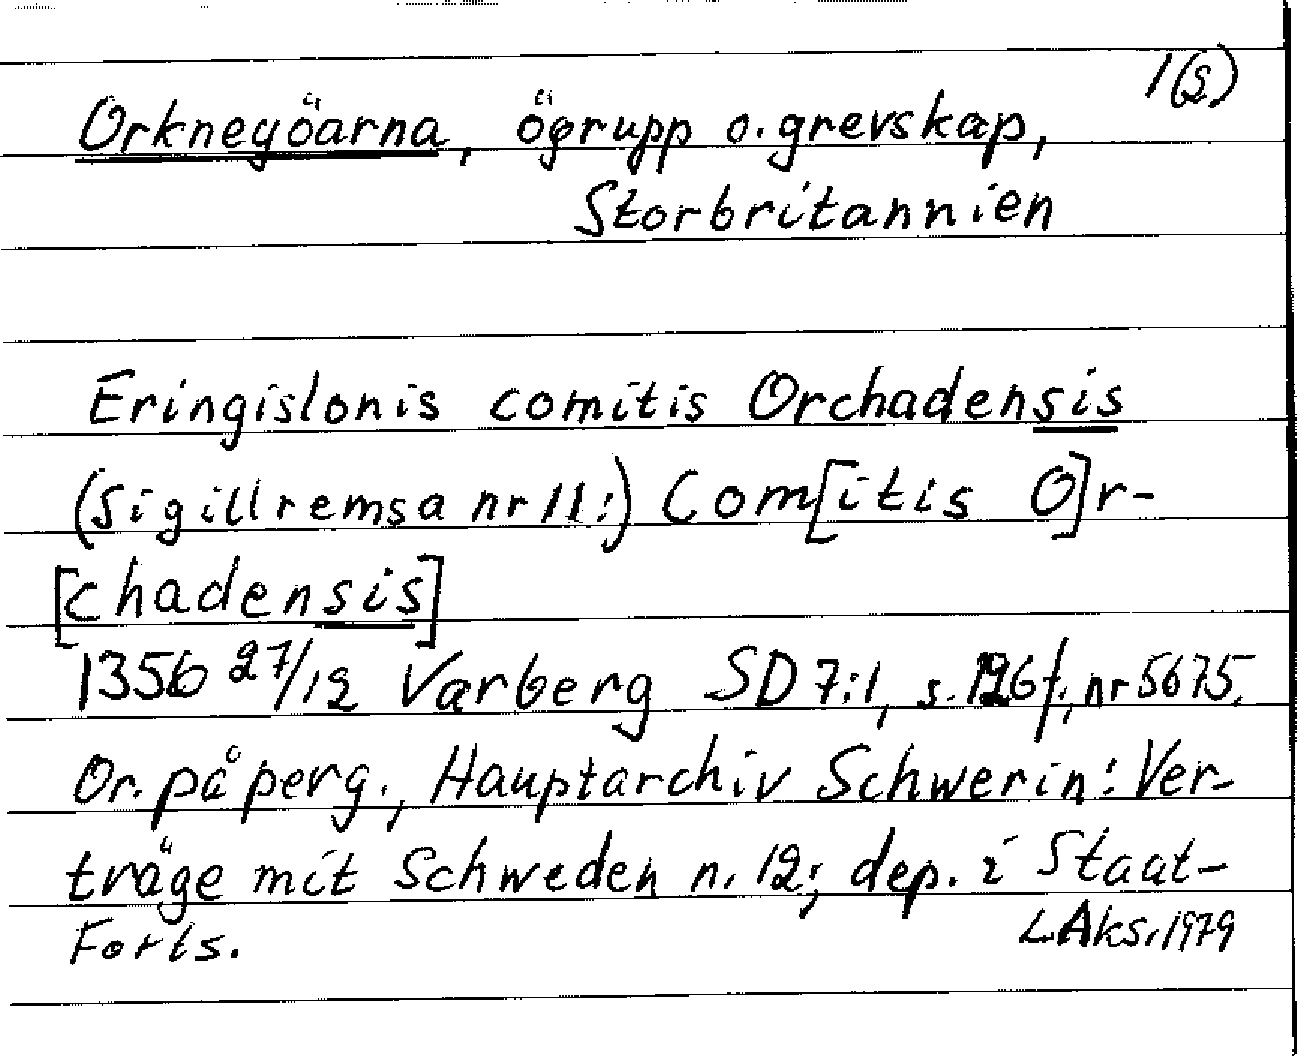 1(2)
Orkneyöarna, ögrupp o. grevskap,
Storbritannien
Eringislonis comitis Orchadensis
(Sigillremsa nr 11:) Com[itis O]r-
[chadensis]
1356 27/12 Varberg SD 7:1, s. 126 f., nr 5675.
Or. på perg., Hauptarchiv Schwerin: Ver-
träge mit Schweden n. 12; dep. i Staat-
Forts.
LAks. 1979